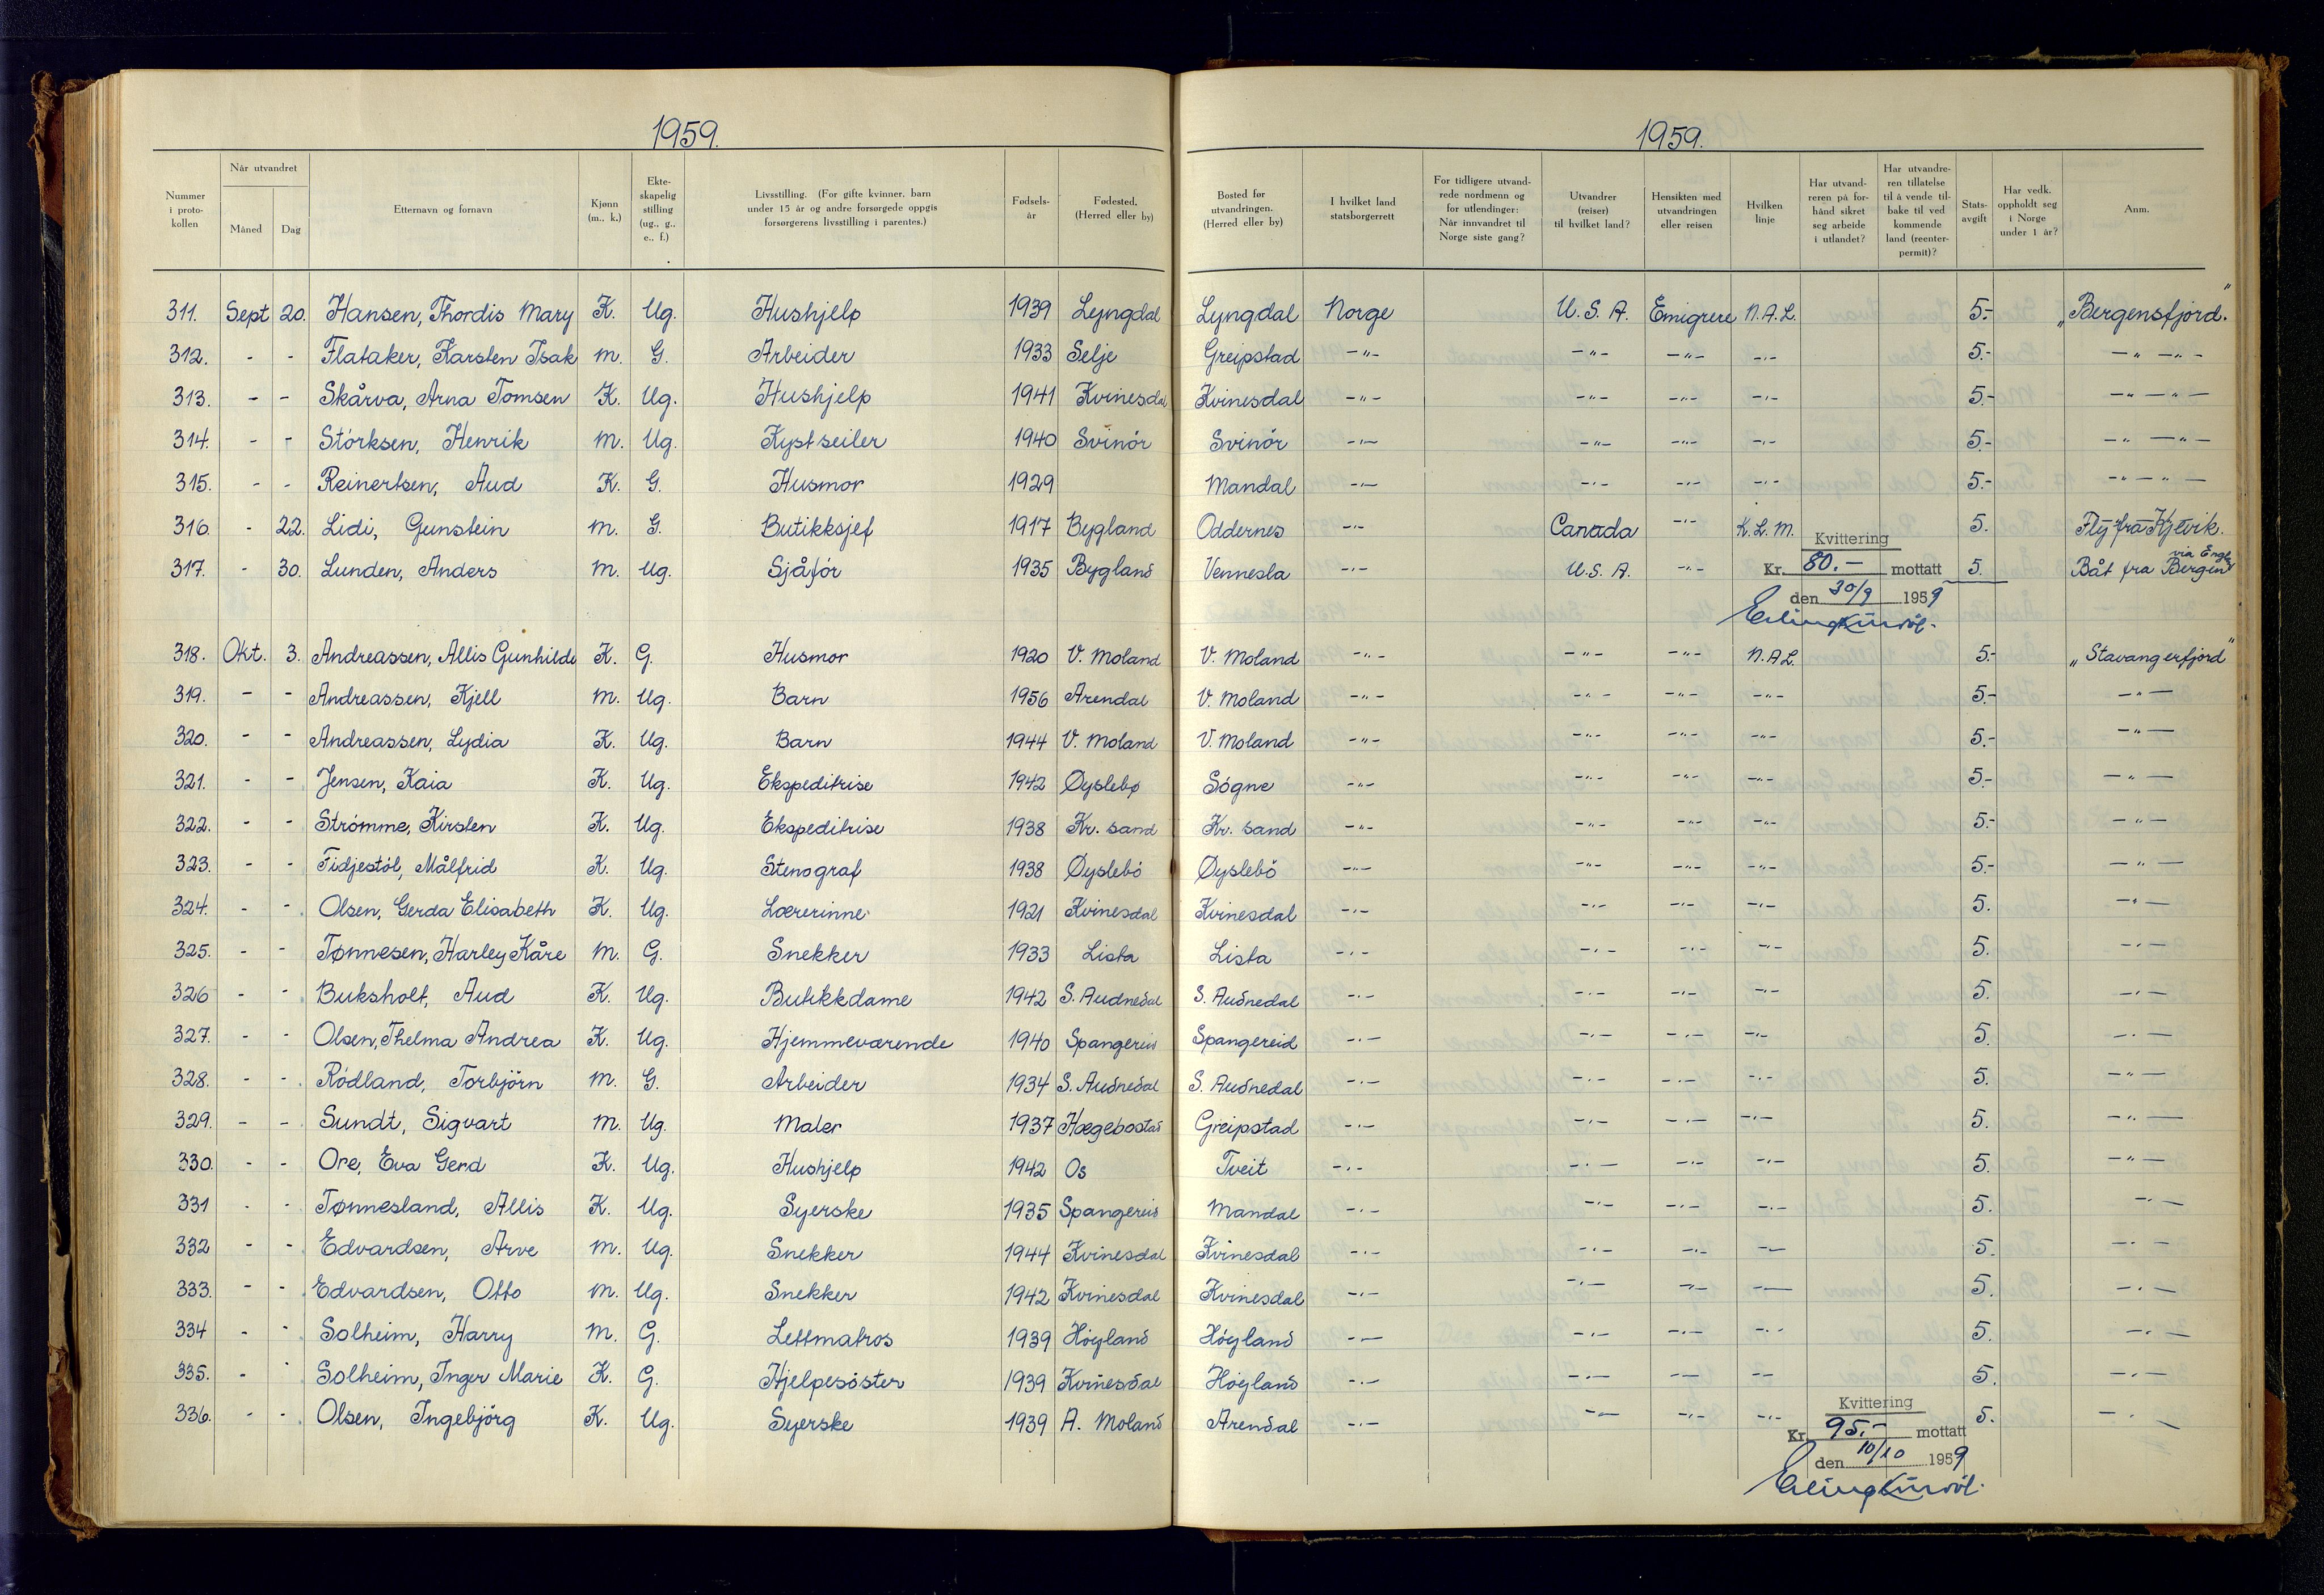 1959.
1959.
Nummer i protokollen | Når utvandret Måned Dag | Etternavn og fornavn | Kjønn (m., k.) | Ekteskapelig stilling (ug., g., e., f.) | Livsstilling. (For gifte kvinner, barn under 15 år og andre forsørgede oppgis forsørgerens livsstilling i parentes.) | Fødselsår | Fødested. (Herred eller by) | Bosted før utvandringen. (Herred eller by) | I hvilket land statsborgerrett | For tidligere utvandrede nordmenn og for utlendinger: Når innvandret til Norge siste gang? | Utvandrer (reiser) til hvilket land? | Hensikten med utvandringen eller reisen | Hvilken linje | Har utvandreren på forhånd sikret seg arbeide i utlandet? | Har utvandreren tillatelse til å vende tilbake til vedkommende land (reenterpermit)? | Statsavgift | Har vedk. oppholdt seg i Norge under 1 år? | Anm.
311. Sept 20. Hansen, Thordis Mary K. Ug. Hushjelp 1939 Lyngdal Lyngdal Norge U.S.A. Emigrere N.A.L. 5.- „Bergensfjord."
312. - - Flataker, Karsten Isak m. G. Arbeider 1933 Selje Greipstad -"- -"- -"- -"- 5.- -"- -"-
313. - - Skårva, Arna Tomsen K. Ug. Hushjelp 1941 Kvinesdal Kvinesdal -"- -"- -"- -"- 5.- -"- -"-
314. - - Störksen, Henrik m. Ug. Kystseiler 1940 Svinör Svinör -"- -"- -"- -"- 5.- -"- -"-
315. - - Reinertsen, Aud K. G. Husmor 1929 Mandal -"- -"- -"- -"- 5.- -"- -"-
316. - 22. Lidi, Gunstein m. G. Butikksjef 1917 Bygland Oddernes -"- Canada -"- K.L.M. 5. Fly fra Kjevik.
317. - 30. Lunden, Anders m. Ug. Sjåför 1935 Bygland Vennesla -"- U.S.A. -"- 5. Båt fra Bergen via Engl.
Kvittering
Kr. 80.- mottatt
den 30/9 1959
318. Okt. 3. Andreassen, Allis Gunhilde K. G. Husmor 1920 V. Moland V. Moland -"- -"- -"- N.A.L. 5.- „Stavangerfjord"
319. - - Andreassen, Kjell m. Ug. Barn 1956 Arendal V. Moland -"- -"- -"- -"- 5.- -"-
320. - - Andreassen, Lydia K. Ug. Barn 1944 V. Moland V. Moland -"- -"- -"- -"- 5.- -"-
321. - - Jensen, Kaia K. Ug. Ekspeditrise 1942 Øyslebø Sögne -"- -"- -"- -"- 5.- -"-
322. - - Strömme, Kirsten K. Ug. Ekspeditrise 1938 Kr. sand Kr. sand -"- -"- -"- -"- 5.- -"-
323. - - Tidjestöl, Målfrid K. Ug. Stenograf 1938 Øyslebö Øyslebö -"- -"- -"- -"- 5.- -"-
324. - - Olsen, Gerda Elisabeth K. Ug. Lærerinne 1921 Kvinesdal Kvinesdal -"- -"- -"- -"- 5. -"-
325. - - Tønnesen, Harley Kåre m. G. Snekker 1933 Lista Lista -"- -"- -"- -"- 5. -"-
326 - - Buksholt, Aud K. Ug. Butikkdame 1942 S. Audnedal S. Audnedal -"- -"- -"- -"- 5. -"-
327. - - Olsen, Thelma Andrea K. Ug. Hjemmeværende 1940 Spangereid Spangereid -"- -"- -"- -"- 5. -"-
328. - - Rödland, Torbjörn m. G. Arbeider 1934 S. Audnedal S. Audnedal -"- -"- -"- -"- 5. -"-
329. - - Sundt, Sigvart m. Ug. Maler 1937 Hægebostad Greipstad -"- -"- -"- -"- 5. -"-
330. - - Ore, Eva Gerd K. Ug. Hushjelp 1942 Os Tveit -"- -"- -"- -"- 5. -"-
331 - - Tønnesland, Allis K. Ug. Syerske 1935 Spangereid Mandal -"- -"- -"- -"- 5. -"-
332 - - Edvardsen, Arve m. Ug. Snekker 1944 Kvinesdal Kvinesdal -"- -"- -"- -"- 5. -"-
333. - - Edvardsen, Otto m. Ug. Snekker 1942 Kvinesdal Kvinesdal -"- -"- -"- -"- 5. -"-
334 - - Solheim, Harry m. G. Lettmatros 1939 Höyland Höyland -"- -"- -"- -"- 5. -"-
335. - - Solheim, Inger Marie K. G. Hjelpesöster 1939 Kvinesdal Höyland -"- -"- -"- -"- 5. -"-
336. - - Olsen, Ingebjörg K. Ug. Syerske 1939 A. Moland Arendal -"- -"- -"- -"- 5. -"-
Kvittering
Kr. 95.- mottatt
den 10/10 1959